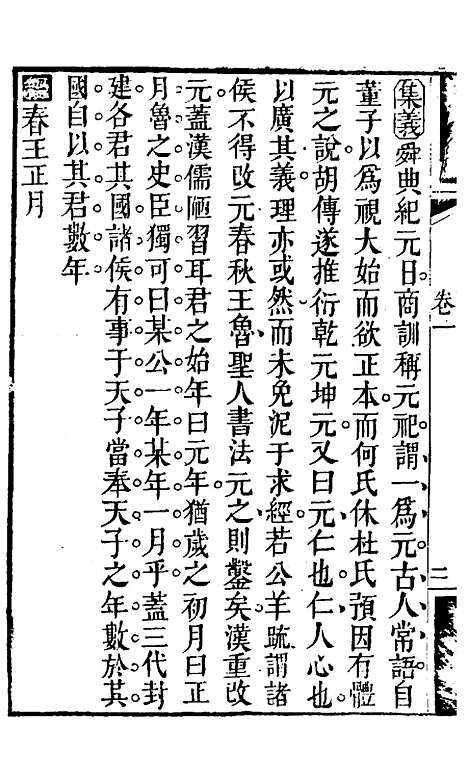 集義舜典紀元日商訓稱元祀謂一爲元古人常語自
董子以爲視大始而欲正本而何氏休杜氏預因有體
元之說胡傳遂推衍乾元坤元又曰元仁也仁人心也
以廣其義理亦或然而未免泥于求經若公羊䟽謂諸
侯不得改元春秋王魯聖人書法元之則鑿矣漢重改
元蓋漢儒陋習耳君之始年曰元年猶歲之初月曰正
月魯之史臣獨可曰某公一年某年一月乎蓋三代封
建各君其國諸侯有事于天子當奉天子之年數於其
國自以其君數年
經春王正月
卷一
二